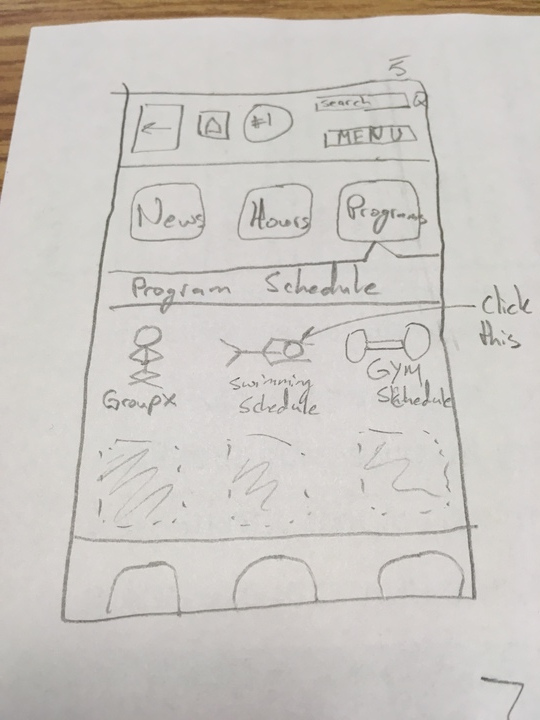 5
search
#1
MENU
News
Hours
Programs
Program Schedule
click
this
GroupX
Swimming
Schedule
GYM
Schedule
7